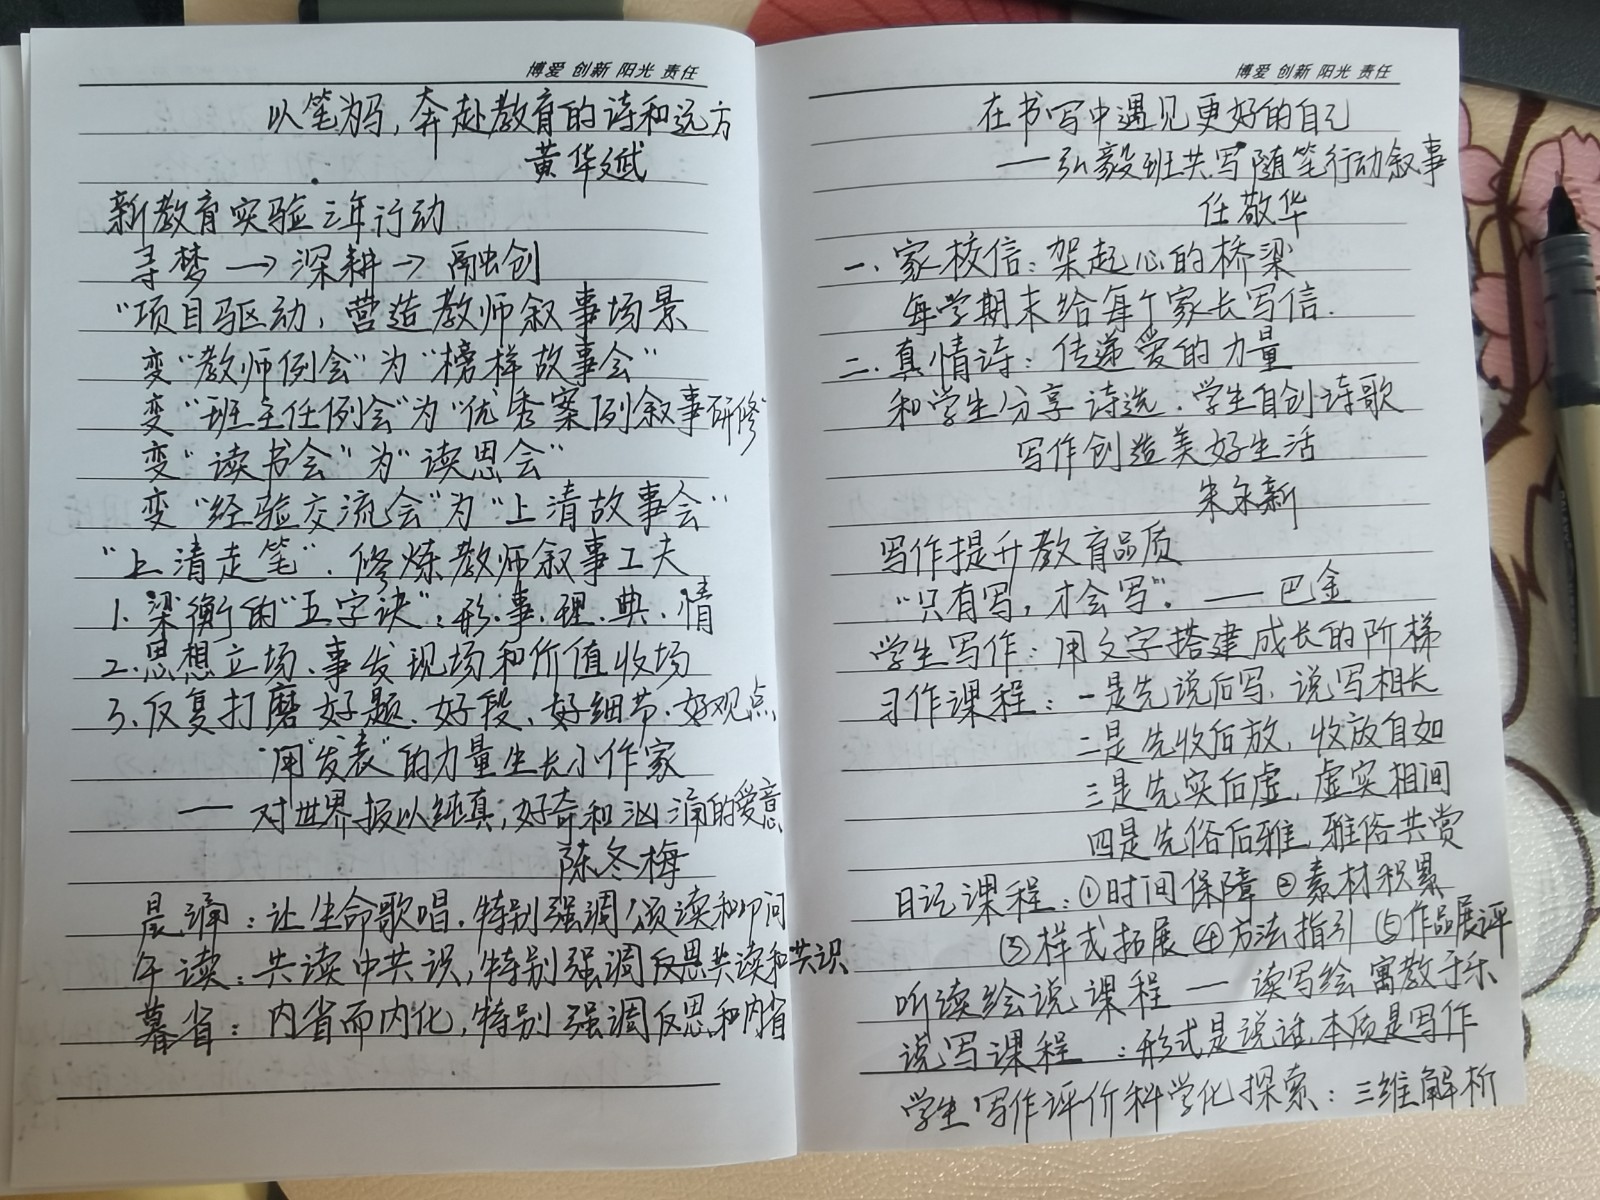 博爱 创新 阳光 责任
以笔为马，奔赴教育的诗和远方
黄华斌
新教育实验三年行动
寻梦→深耕→融创
"项目驱动，营造教师叙事场景
变"教师例会"为"榜样故事会"
变"班主任例会"为"优秀案例叙事研修"
变"读书会"为"读思会"
变"经验交流会"为"上清故事会"
"上清走笔"．修炼教师叙事工夫
1.梁衡的"五字诀"：形.事.理.典.情
2.思想立场、事发现场和价值收场
3.反复打磨好题、好段、好细节.好观点
用"发表"的力量生长小作家
——对世界报以纯真，好奇和汹涌的爱意
陈冬梅
晨诵：让生命歌唱．特别强调颂读和叩问
午读：共读中共识，特别强调反思共读和共识
暮省：内省而内化，特别强调反思和内省
博爱 创新 阳光 责任
在书写中遇见更好的自己
——弘毅班共写随笔行动叙事
任敬华
一．家校信：架起心的桥梁
每学期末给每个家长写信．
二．真情诗：传递爱的力量
和学生分享诗选．学生自创诗歌
写作创造美好生活
朱永新
写作提升教育品质
"只有写，才会写"。——巴金
学生写作：用文字搭建成长的阶梯
习作课程：一是先说后写，说写相长
二是先收后放，收放自如
三是先实后虚，虚实相间
四是先俗后雅，雅俗共赏
日记课程：①时间保障②素材积累
③样式拓展④方法指引⑤作品展评
听读绘说课程——读写绘 寓教于乐
说写课程：形式是说话，本质是写作
学生写作评价科学化探索：三维解析